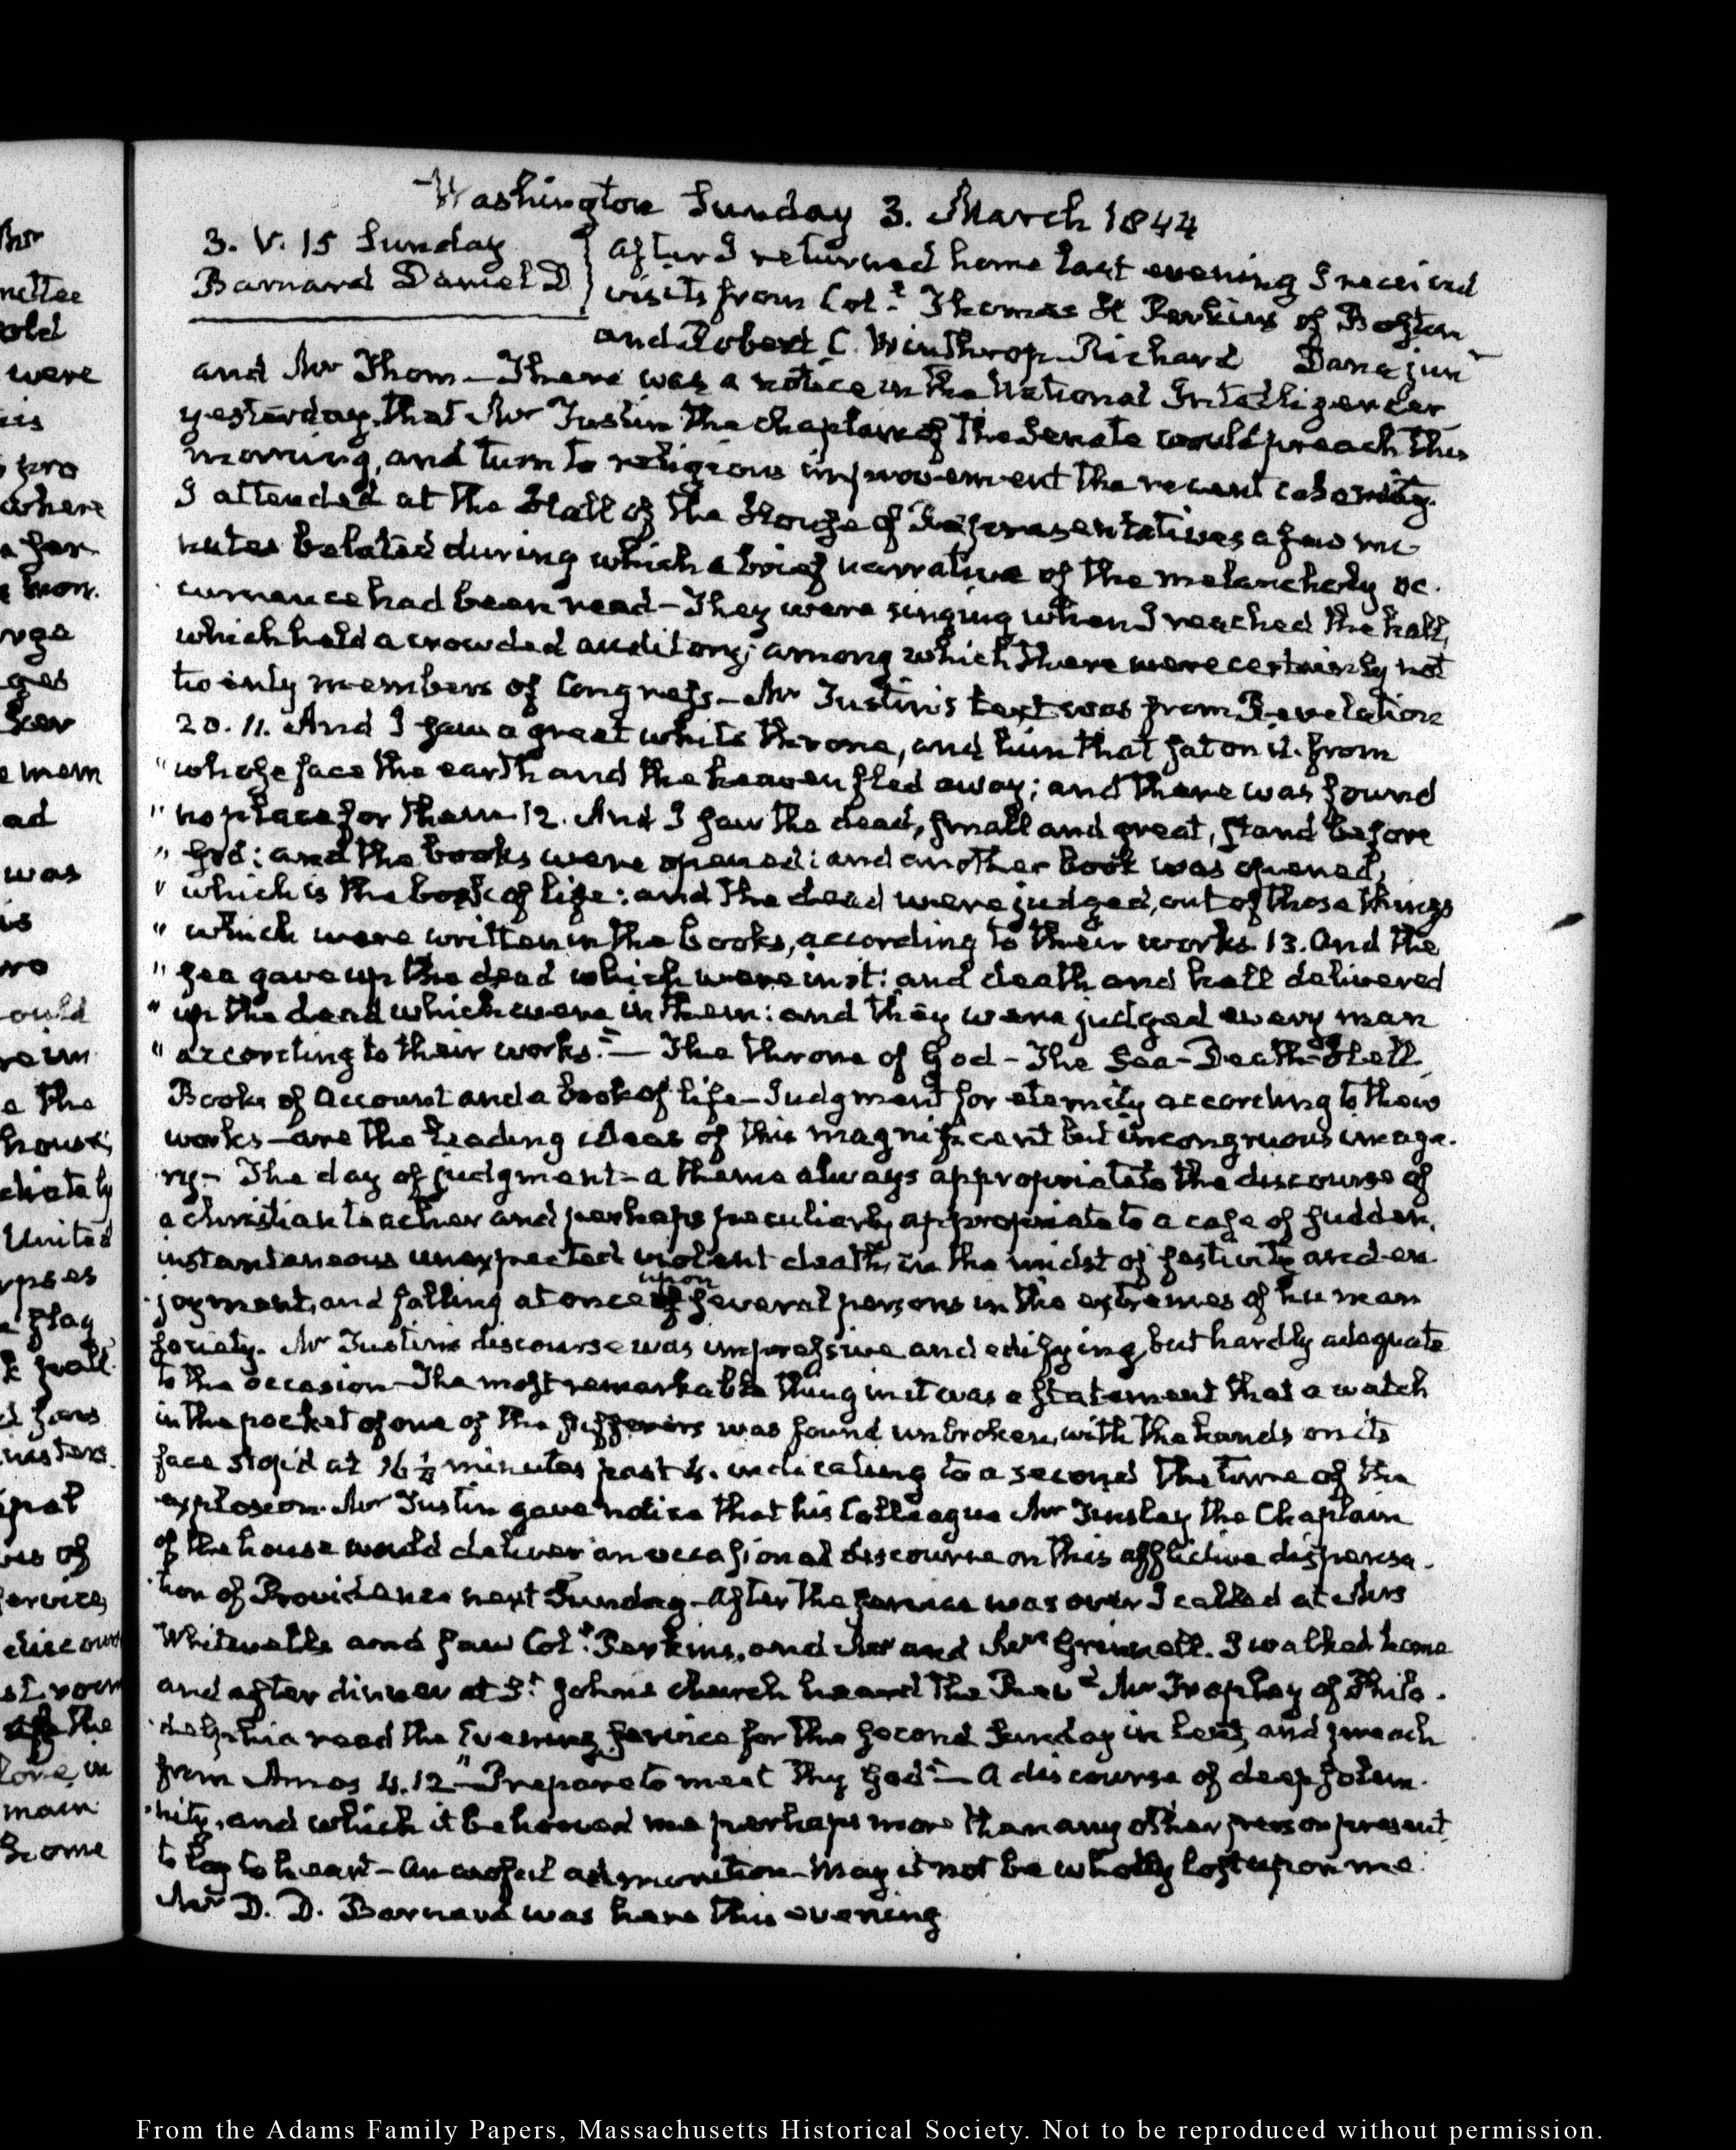 Washington Sunday 3. March 1844
3. V. 15 Sunday
Barnard Daniel D
After I returned home last evening I received
visits from Col.t Thomas H Perkins of Boston
and Robert C. Winthrop Richard Dana junr
and Mr Thom — There was a notice in the National Intelligencer
yesterday, that Mr Tustin the chaplain of the Senate would preach this
morning, and turn to religious improvement the recent calamity.
I attended at the Hall of the House of Representatives a few mi
nutes belated during which a brief narrative of the melancholy oc.
currence had been read — They were singing when I reached the hall,
which held a crowded auditory; among which there were certainly not
twenty members of Congress — Mr Tustin's text was from Revelation
20. 11. And I saw a great white throne, and him that sat on it. from
"whose face the earth and the heaven fled away; and there was found
"no place for them 12. And I saw the dead, small and great, stand before
"God: and the books were opened: and another book was opened,
"which is the book of life: and the dead were judged, out of those things
"which were written in the books, according to their works. 13. And the
"sea gave up the dead which were in it: and death and hell delivered
"up the dead which were in them: and they were judged every man
"according to their works." — The throne of God — The Sea — Death — Hell
Books of Account and a book of life — Judgment for eternity according to their
works — are the leading ideas of this magnificent but incongruous image.
ry — The day of judgment — a theme always appropriate to the discourse of
a christian teacher and perhaps peculiarly appropriate to a case of sudden,
instantaneous unexpected violent death, in the midst of festivity and en
joyment, and falling at once upon several persons in the extremes of human
society. Mr Tustin's discourse was impressive and edifying, but hardly adequate
to the occasion — The most remarkable thing in it was a statement that a watch
in the pocket of one of the sufferers was found unbroken, with the hands on its
face stop'd at 16 ½ minutes past 4. indicating to a second the time of the
explosion. Mr Tustin gave notice that his Colleague Mr Tinsley the Chaplain
of the house would deliver an occasional discourse on this afflictive dispensa.
tion of Providence next Sunday — After the service was over I called at Mrs
Whitwell's and saw Col.t Perkins, and Mr and Mrs Grinnell. I walked home
and after dinner at St. John's church heard the Revd Mr Trapley of Phila.
delphia read the Evening service for the second Sunday in Lent, and preach
from Amos 4. 12 "Prepare to meet thy God" — A discourse of deep solem.
nity, and which it behooved me perhaps more than any other person present
to lay to heart — An awful admonition — May it not be wholly lost upon me.
Mr D. D. Barnard was here this evening
From the Adams Family Papers, Massachusetts Historical Society. Not to be reproduced without permission.